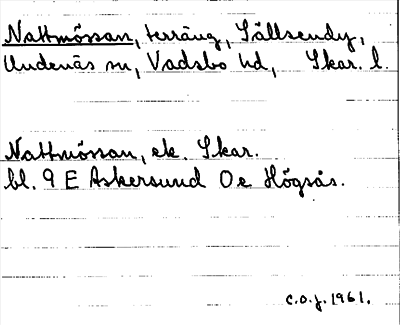 Nattmössan, terräng, Sällsendy,
Undenäs sn, Vadsbo hd, Skar. l.
Nattmössan, ek. Skar.
bl. 9 E Askersund 0e Högsås.
C.O.J. 1961.